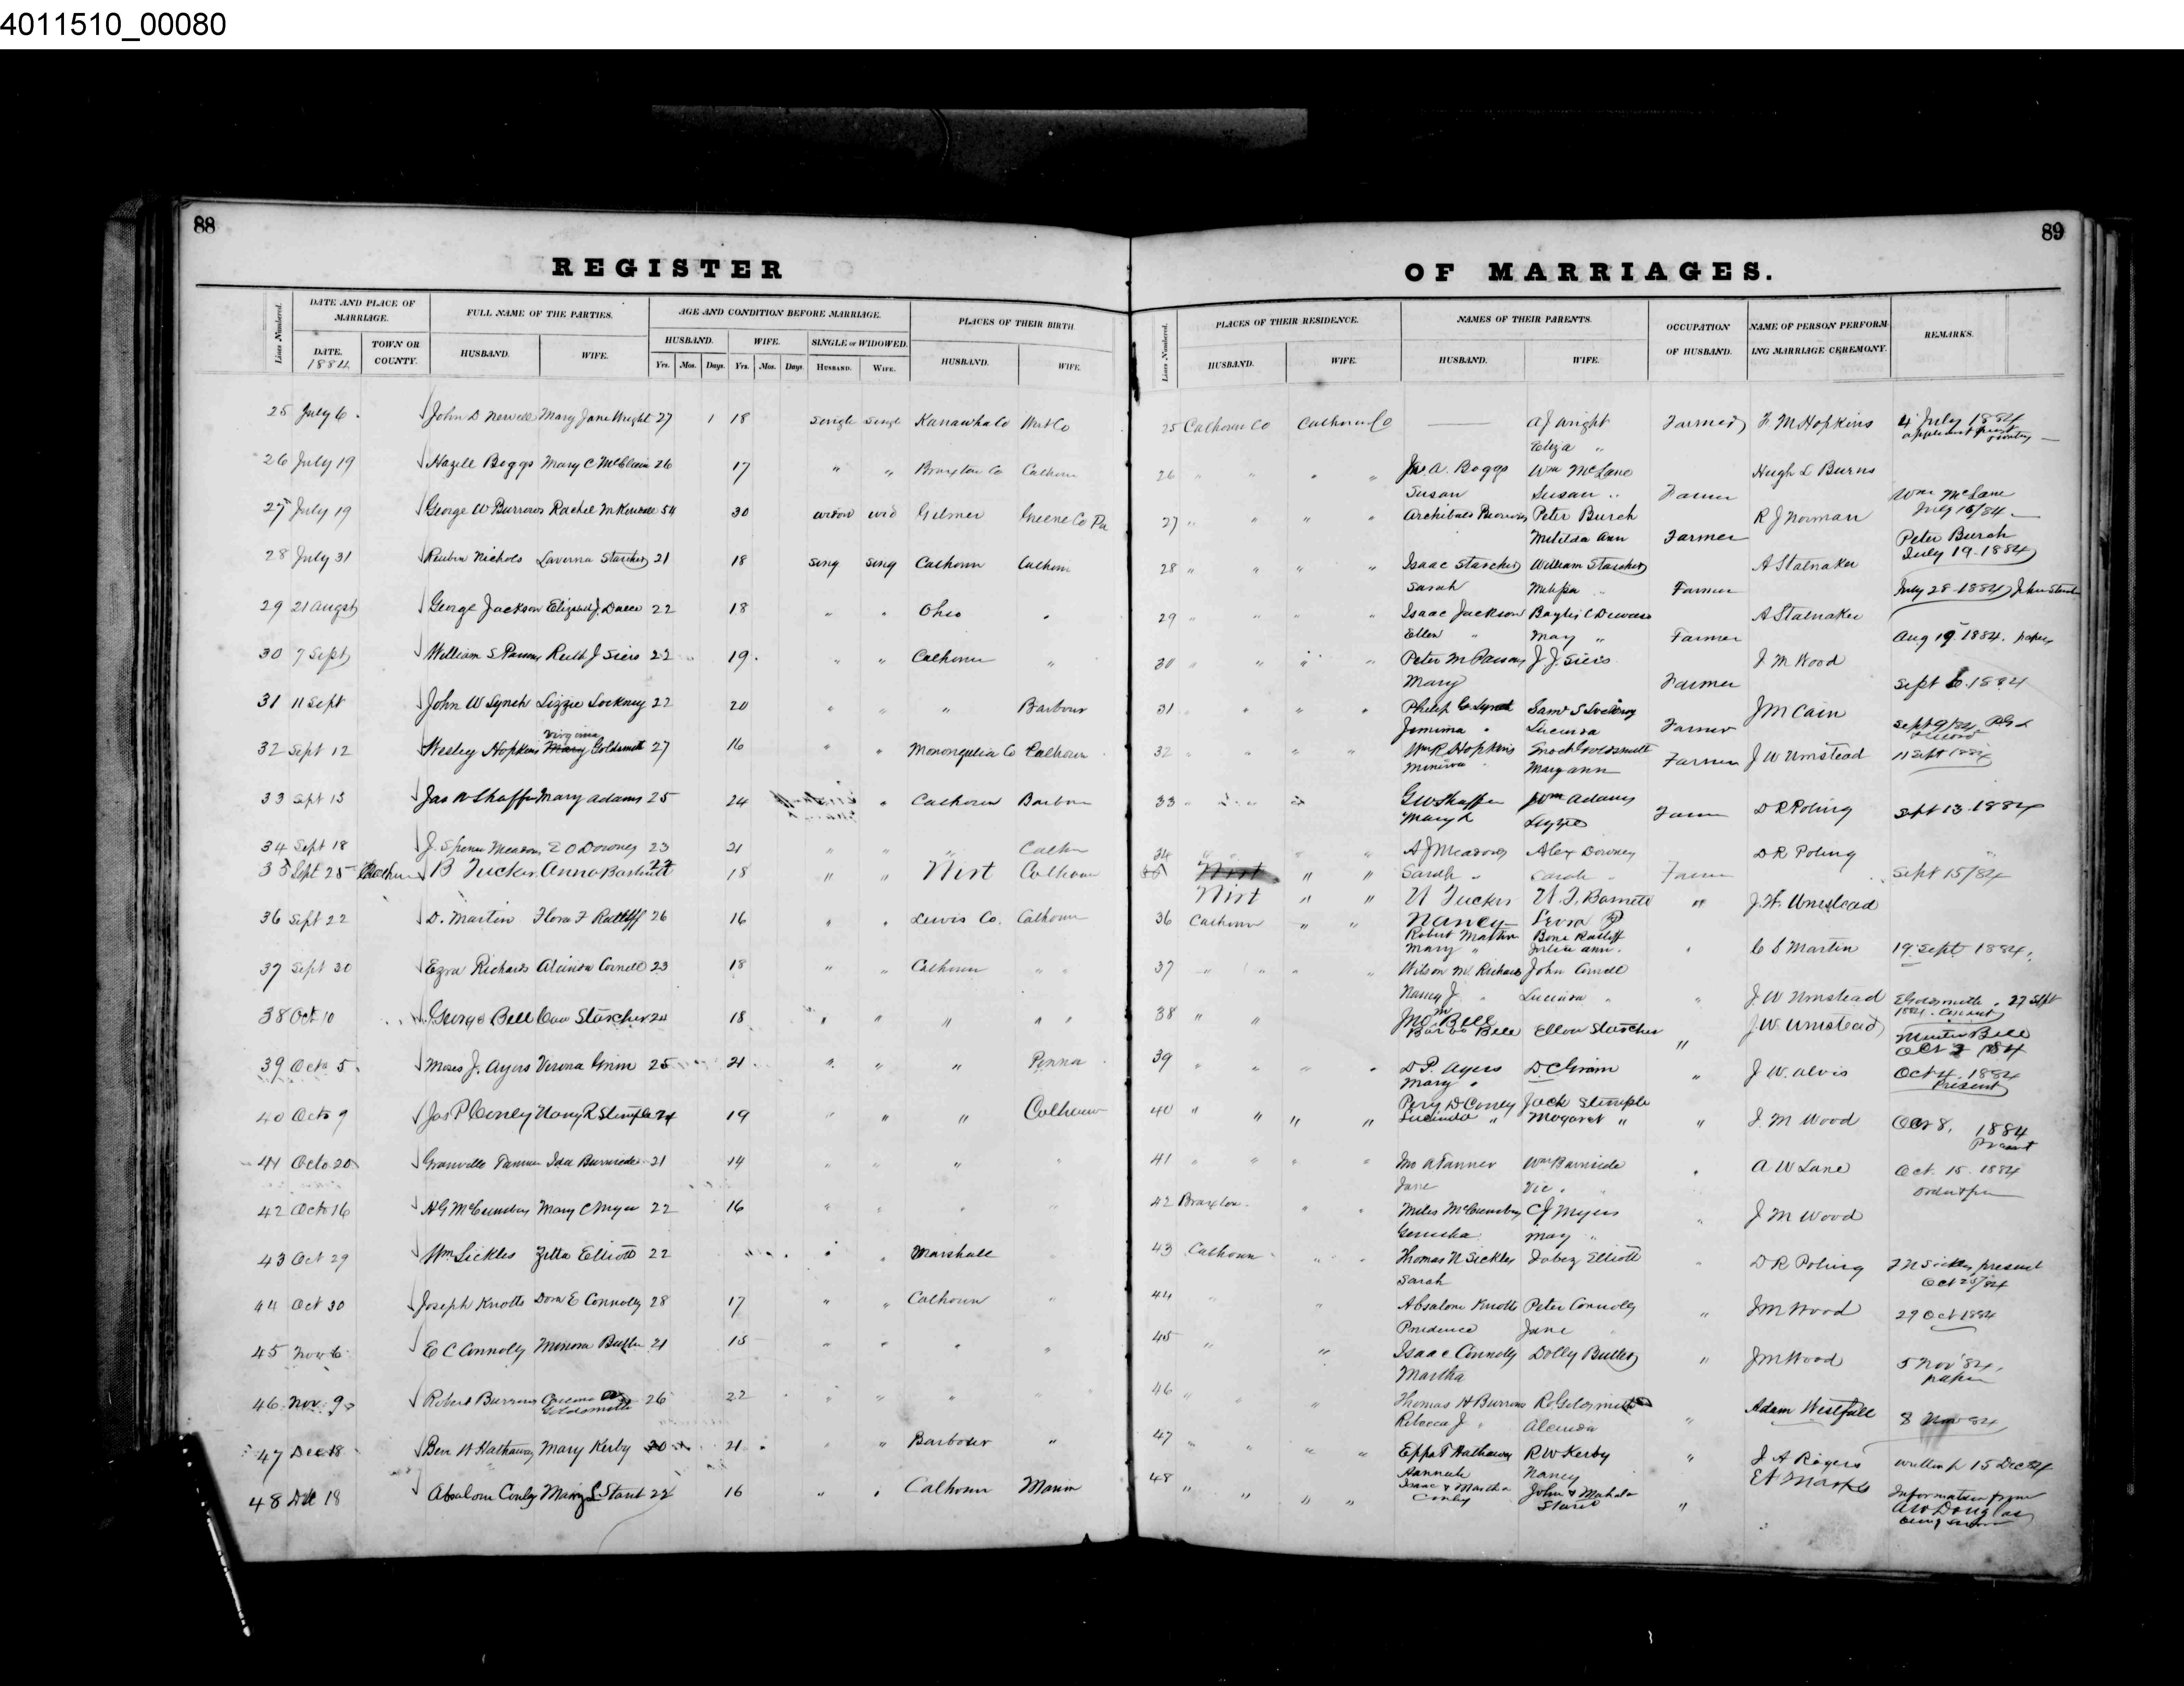 4011510_00080
88
REGISTER
Lines Numbered.
DATE AND PLACE OF MARRIAGE.
FULL NAME OF THE PARTIES.
AGE AND CONDITION BEFORE MARRIAGE.
PLACES OF THEIR BIRTH.
DATE. 1884
TOWN OR COUNTY.
HUSBAND.
WIFE.
HUSBAND. WIFE. SINGLE or WIDOWED.
Yrs. Mos. Days. Yrs. Mos. Days. HUSBAND. WIFE.
HUSBAND. WIFE.
25 July 6 John D Newell Mary Jane Wright 27 1 18 Single Single Kanawha Co Wirt Co
26 July 19 Hazell Boggs Mary C 26 17 " " Braxton Co Calhoun
27 July 19 George W Burrows Rachel 54 30 widow wid Gilmer Greene Co Pa
28 July 31 Reuben Nichols Laverna Starcher 21 18 Sing Sing Calhoun Calhoun
29 21 Augst George Jackson Elizabeth J. 22 18 " " Ohio "
30 7 Sept William S Parsons Ruth J Siers 22 19 " " Calhoun "
31 11 Sept John W Lynch Lizzie Lockney 22 20 " " " Barbour
32 Sept 12 Wesley Hopkins Virginia Goldsmith 27 16 " " Calhoun
33 Sept 13 Jas W Shaffer Mary Adams 25 24 " Calhoun Barbour
34 Sept 18 J. Spencer Meadows E O Downey 23 21 " " " Calhoun
35 Sept 25 Calhoun B Tucker Anna Barnett 22 18 " " Wirt Calhoun
36 Sept 22 D. Martin Flora F Ratliff 26 16 " " Lewis Co. Calhoun
37 Sept 30 Ezra Richards Alcinda Cornell 23 18 " " Calhoun " "
38 Oct 10 George Bell Starcher 24 18 " " " " "
39 Octo 5 Moses J. Ayers Verona Grim 25 21 " " " Penna
40 Octo 9 Jas P Conley Nancy R Stemple 24 19 " " " Calhoun
41 Octo 20 Granville Tanner Ida Burnside 21 14 " " " "
42 Octo 16 Mary C Myers 22 16 " " " "
43 Oct 29 Wm Sickles Zilla Elliott 22 " " Marshall "
44 Oct 30 Joseph Knotts Dora E Connolly 28 17 " " Calhoun "
45 Nov 6 E C Connolly Butler 21 18 " " " "
46 Nov. 9 Robert Burrows Goldsmith 26 22 " " " "
47 Dec 18 Ben W Hathaway Mary Kerby 20 21 " " Barbour "
48 Dec 18 Absalom Conley Mary S. 22 16 " " Calhoun Marion
89
OF MARRIAGES.
Lines Numbered.
PLACES OF THEIR RESIDENCE.
NAMES OF THEIR PARENTS.
OCCUPATION OF HUSBAND.
NAME OF PERSON PERFORMING MARRIAGE CEREMONY.
REMARKS.
HUSBAND. WIFE. HUSBAND. WIFE.
25 Calhoun Co Calhoun Co A J Wright Farmer F M Hopkins 4 July 1884
Eliza "
26 " " " " Jno A. Boggs Wm McLane Hugh L Burns
Susan Susan " Farmer Wm McLane
July 15/84
27 " " " Archibald Burrows Peter Burch R J Norman
Matilda Ann Farmer Peter Burch
July 19 1884
28 " " " " Isaac Starcher William Starcher A Stalnaker
Sarah " Farmer July 28 1884 John Starcher
29 " " " " Isaac Jackson A Stalnaker
Ellen " May " Farmer Aug 19 1884. paper
30 " " " " Peter M Parsons J J. Siers J. M Wood
Mary Farmer Sept 6. 1884
31 " " " " Philip C Lynch Saml S Lockney J M Cain
Jemima " Lucinda Farmer
32 " " " " Wm R Hopkins Enoch Goldsmith Farmer J W Umstead 11 Sept 1884
Minerva " Mary ann
33 " G W Shaffer Wm Adams Farmer D R Poling Sept 13. 1884
Mary
34 " " " A J Meadows Alex Downey D R Poling
Sarah " Sarah " Farmer Sept 15/84
35 Wirt " " Tucker Barnett " J. W. Umstead
Nancy
36 Calhoun " " Robert Martin Bone Ratliff C S Martin 19 Sept 1884.
Mary " Julia ann.
37 " " " " Wilson M. Richards John Cornell
Nancy J. " Lucinda " " J. W Umstead 27 Sept 1884
38 " " Jno M Bell Ellen Starcher " J W. Umstead
Bell
39 " " " " D P. Ayers D C Grim " J W. Alvis Oct 4. 1884
Mary " Present
40 " " " " Perry D Conley Jack Stemple
Lucinda " Margaret " " J. M Wood Oct 8, 1884
Present
41 " " " " Jno A Tanner Wm Burnside " A W Lane Oct. 15 1884
Jane Vic "
42 Braxton " " C J Myers " J M Wood
May "
43 Calhoun " " Thomas N Sickles Elliott " D R Poling T N Sickles present
Sarah Oct 28/84
44 " Absalom Knotts Peter Connolly " J M Wood 29 Oct 1884
Prudence Jane
45 " " Isaac Connolly Dolly Butler " J M Wood 5 Nov 84.
Martha paper
46 " " " Thomas H Burrows Goldsmith Adam Westfall 8 Nov 84
Rebecca J " Alcinda "
47 " " " " Hathaway R W Kerby " J A Rogers 15 Dec 84
Hannah Nancy
48 " " " " Isaac & Martha Conley John & Mahala "
Information from
A W Douglas